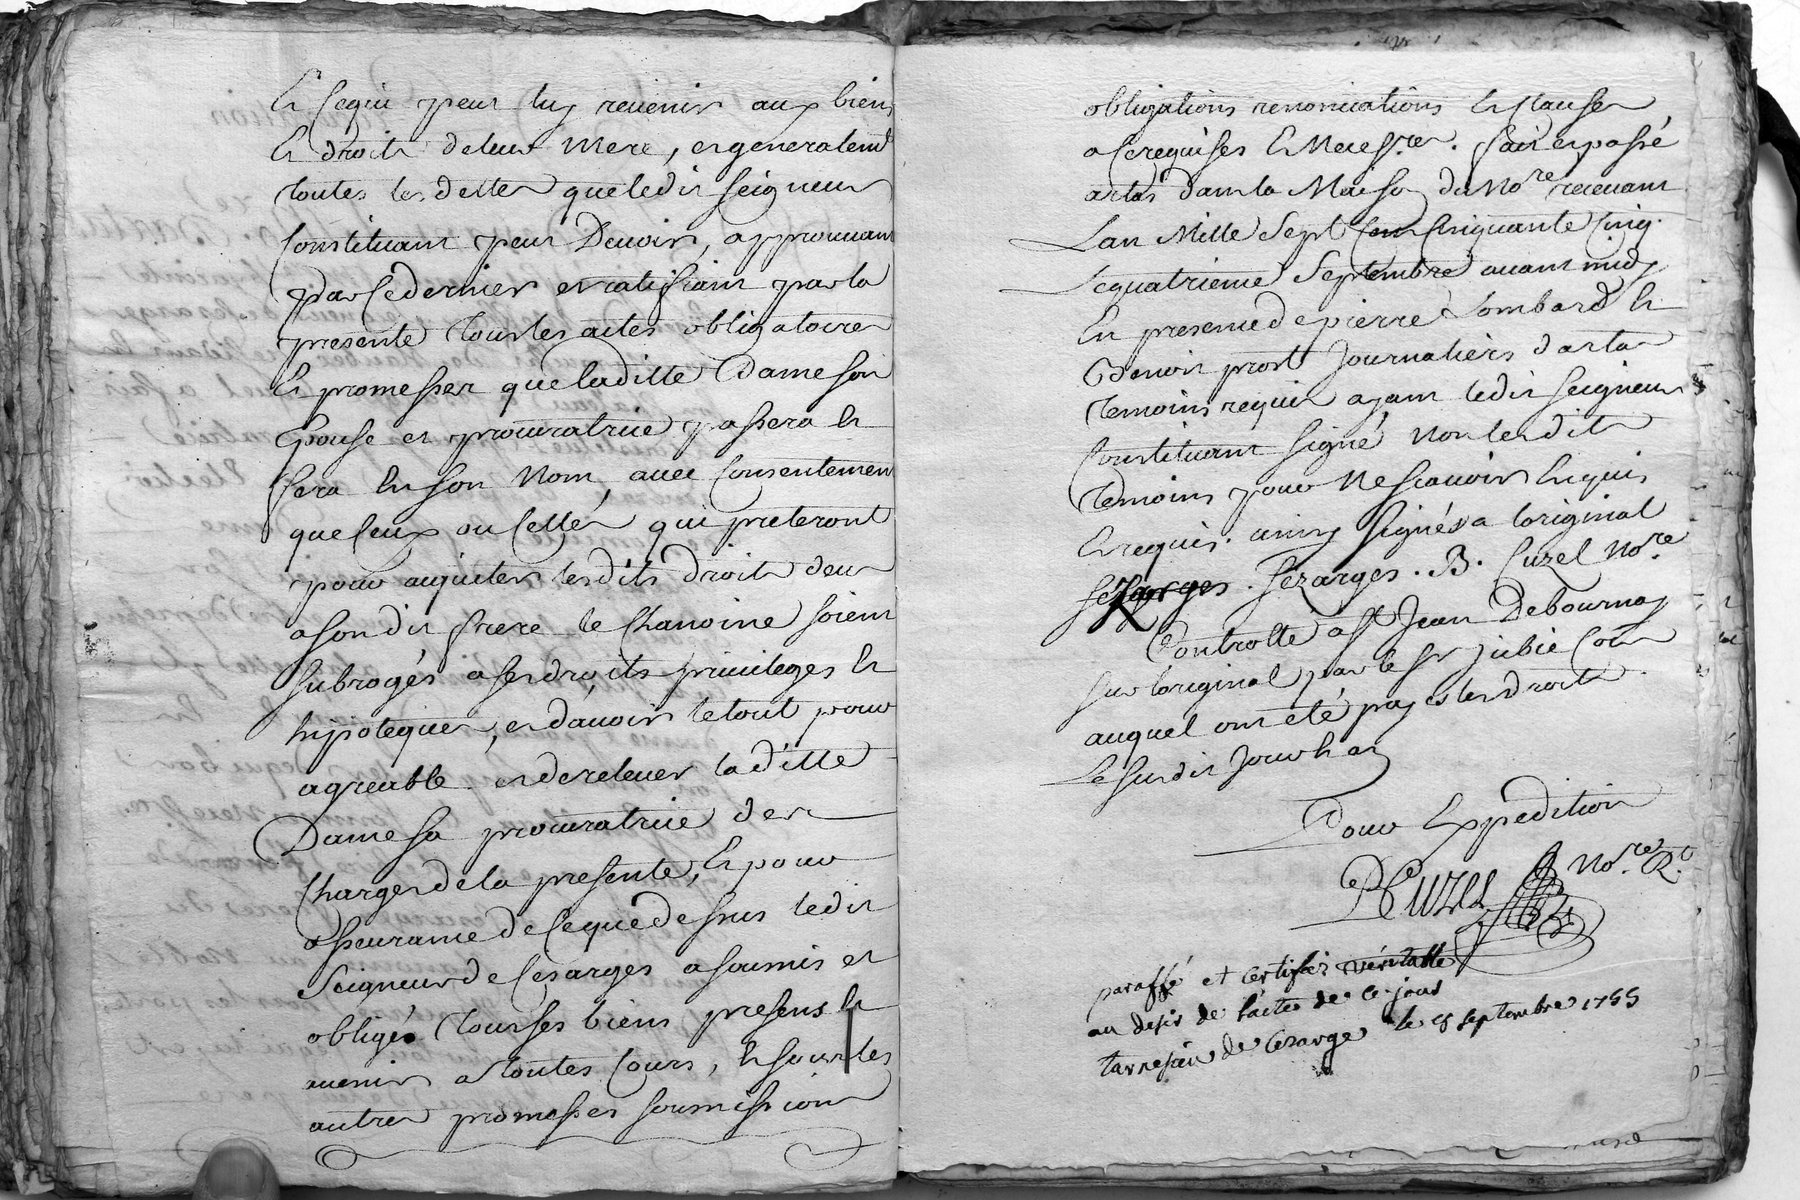 Et Cequi peut luy revenir aux biens
Et droits de leur Mere, et generalemt
toutes les dettes que ledit seigneur
Constituant peut Devoir, approuvant
par Ce dernier et ratifiant par la
presente tous les actes obligatoires
Et promesses que laditte Dame son
Epouse et procuratrice passera Et
fera En son Nom, avec Consentement
que Ceux ou Celles qui preteront
pour aquiter lesdits droits deus
a son dit frere le Chanoine soient
subrogés a ses droits privileges Et
hipoteques, et davoir le tout pour
agreable et de relever laditte
Dame sa procuratrice des
Charges de la presente, Et pour
asseurance de Ceque dessus ledit
Seigneur de Cesarges a soumis et
obligé tous ses biens presens Et
avenir a toutes Cours, Et sous les
autres promesses soumissions
obligations renonciations Et Clauses
a Ce requises Et Necessres. fait et passé
artas dans la Maison du Nore recevant
Lan Mille Sept Cent Cinquante Cinq.
Le quatrieme Septembre avant midy
En presence de pierre Lombard Et
Benoit prost Journaliers dartas
temoins requis ayant ledit seigneur
Constituant signé Non lesdits
temoins pour Ne scavoir Enquis
Et requis. ainsy signés a loriginal
Cesarges. B. Cuzel Nore
Controllé a St Jean Debournay
sur loriginal par le sr jubié Com
auquel ont été payes les droits.
Le susdit Jour Et an
Pour Expedition
Cuzel Nore Rl
paraffé et certifié véritable
au desir de l'acte de ce jour
le septembre 1755
de Cesarge